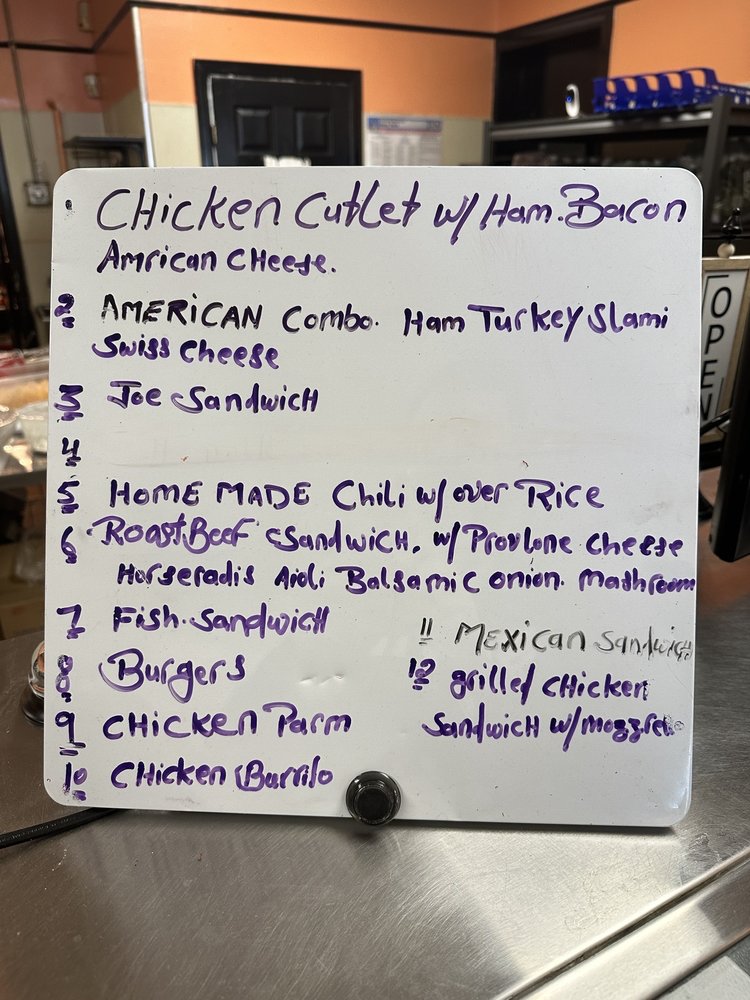 CHicken Cutlet w/ Ham. Bacon
Amrican CHeese.
2 AMERICAN Combo. Ham Turkey Slami
Swiss Cheese
3 Joe Sandwich
4
5 HOME MADE Chili w/ over Rice
6 Roast Beef Sandwich. w/ Provlone cheese
Horseradis Aioli Balsamic onion. Mashroom
7 Fish. Sandwich
8 Burgers
9 CHICKEN Parm
10 CHicken Burrito
11 Mexican Sandwich
12 grilled CHicken
Sandwich w/ mozzrella
OPEN